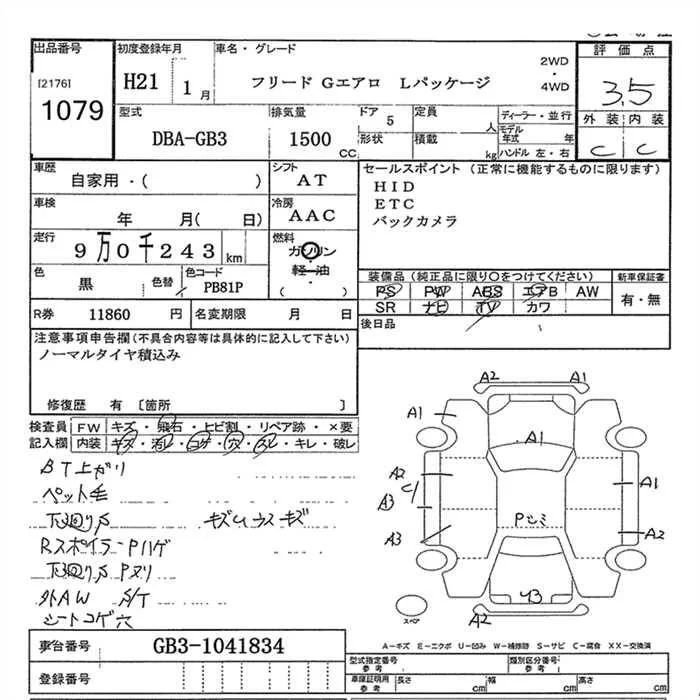 出品番号
[2176]
1079
初度登録年月
H21 1月
車名・グレード
フリード Gエアロ Lパッケージ
2WD
・
4WD
評価点
3.5
外装 内装
C C
型式
DBA-GB3
排気量
1500
CC
ドア
5
形状
定員
人
積載
kg
ディーラー・並行
モデル年式 年
ハンドル 左・右
車歴
自家用・( )
シフト
AT
車検
年 月( 日)
冷房
AAC
走行
9万0千243 km
燃料
ガソリン
・
軽油
( )
色
黒
色替
色コード
PB81P
R券 11860 円
名変期限 月 日
セールスポイント(正常に機能するものに限ります)
HID
ETC
バックカメラ
装備品(純正品に限り○をつけてください)
PS PW ABS エアB AW
SR ナビ TV カワ
新車保証書
有・無
後日品
注意事項申告欄(不具合内容等は具体的に記入して下さい)
ノーマルタイヤ積込み
修復歴 有 〔箇所 〕
検査員記入欄
FW キズ・飛石・ヒビ割・リペア跡・×要
内装 キズ・汚レ・コゲ・穴・スレ・キレ・破レ
BT上ガリ
ペット毛
下廻りS キズUウスキズ
Rスポイラ-Pハゲ
下廻りS Pヌリ
外AW S/T
シートコゲ穴
A2 A1
A1
A1
A2
A1
A3
A3
A2
Pシミ
U3
A2
スペア
A-キズ E-エクボ U-凹み W-補修跡 S-サビ C-腐食 XX-交換済
車台番号 GB3-1041834
登録番号
型式指定番号
参考
類別区分番号
参考
車庫証明用
参考
長さ cm
幅 cm
高さ cm